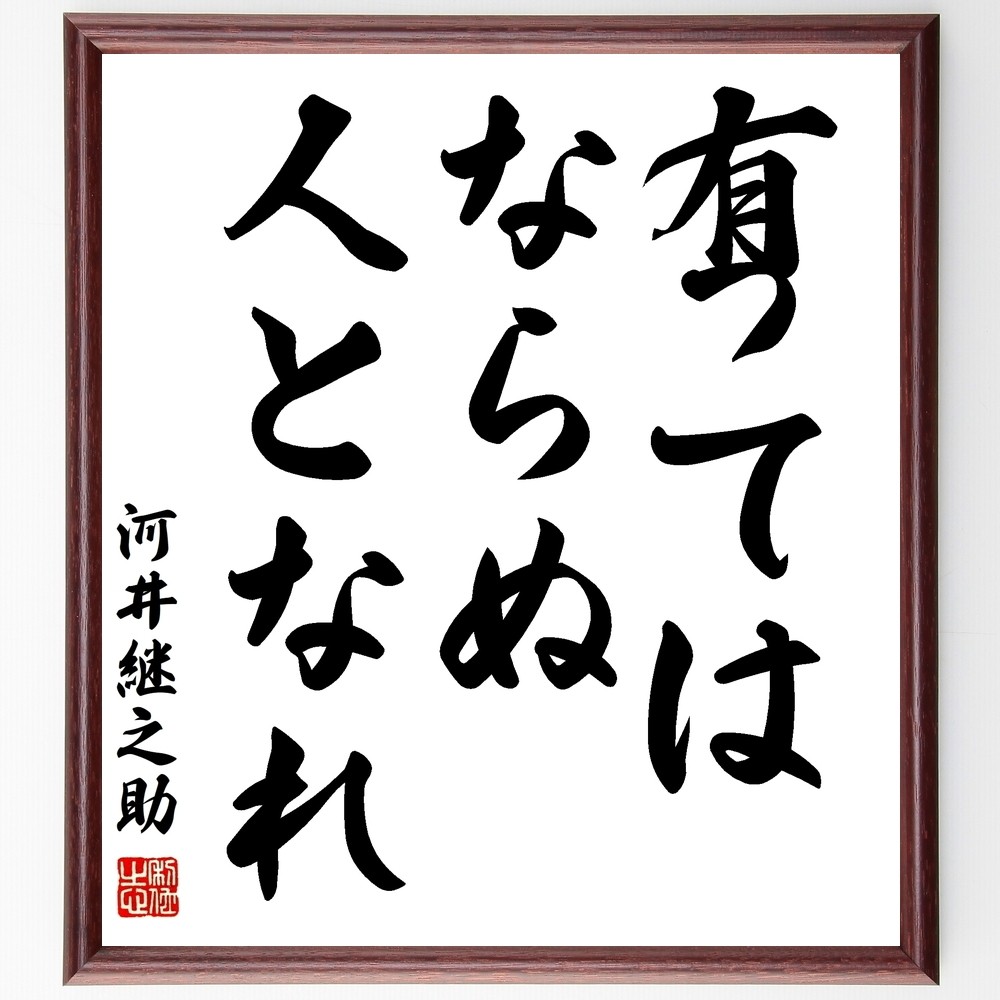 有っては
ならぬ
人となれ
河井継之助